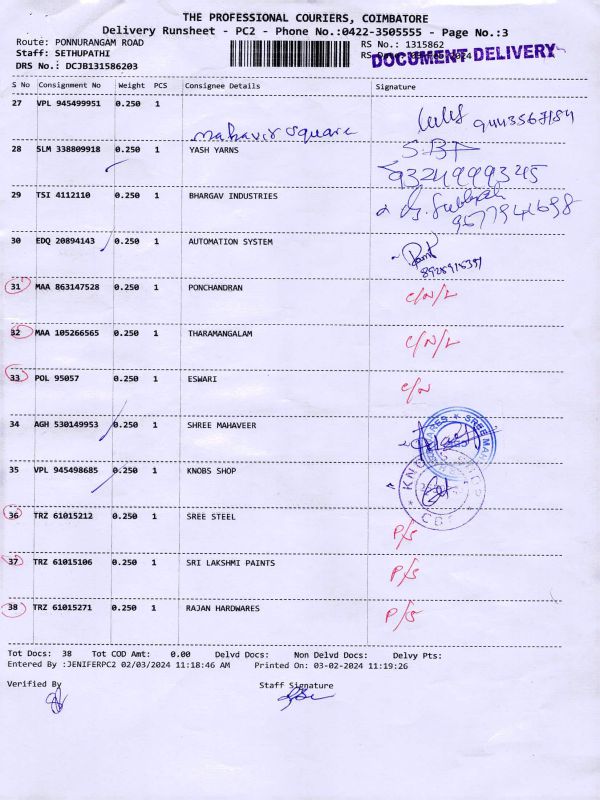 THE PROFESSIONAL COURIERS, COIMBATORE
Delivery Runsheet - PC2 - Phone No.:0422-3505555 - Page No.:3
Route: PONNURANGAM ROAD
RS No.: 1315862
Staff: SETHUPATHI
DOCUMENT DELIVERY
DRS No.: DCJB131586203
S No Consignment No Weight PCS Consignee Details Signature
27 VPL 945499951 0.250 1
mahavir square 9443567184
28 SLM 338809918 0.250 1 YASH YARNS
9324999345
29 TSI 4112110 0.250 1 BHARGAV INDUSTRIES
9577941698
30 EDQ 20894143 0.250 1 AUTOMATION SYSTEM
31 MAA 863147528 0.250 1 PONCHANDRAN C/N/L
32 MAA 105266565 0.250 1 THARAMANGALAM C/N/L
33 POL 95057 0.250 1 ESWARI C/N
34 AGH 530149953 0.250 1 SHREE MAHAVEER
35 VPL 945498685 0.250 1 KNOBS SHOP
36 TRZ 61015212 0.250 1 SREE STEEL P/S
37 TRZ 61015106 0.250 1 SRI LAKSHMI PAINTS P/S
38 TRZ 61015271 0.250 1 RAJAN HARDWARES P/S
Tot Docs: 38 Tot COD Amt: 0.00 Delvd Docs: Non Delvd Docs: Delvy Pts:
Entered By :JENIFERPC2 02/03/2024 11:18:46 AM Printed On: 03-02-2024 11:19:26
Verified By Staff Signature